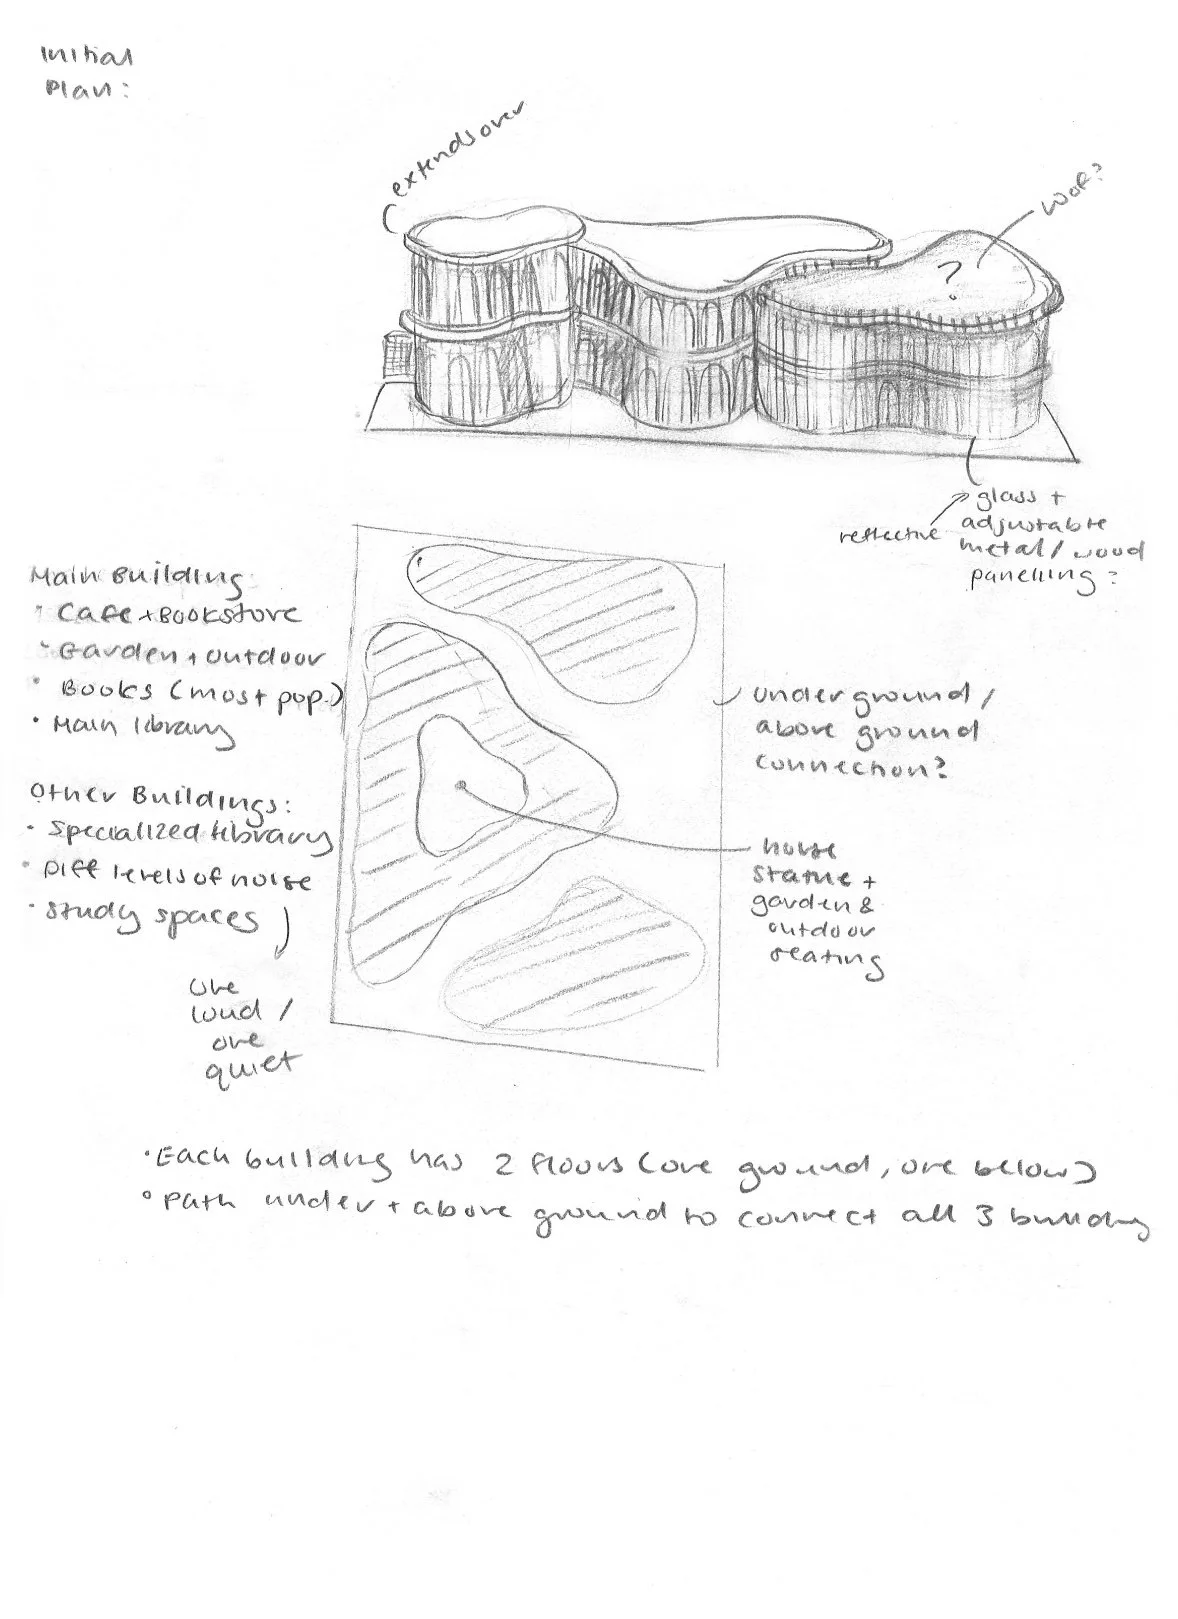 Initial
Plan:
extends over
Woof?
?
glass +
reflective
adjustable
metal / wood
panelling?
Main Building:
• Cafe + Bookstore
• Garden + outdoor
• Books (most pop.)
• Main library
Other Buildings:
• Specialized library
• Diff levels of noise
• Study spaces
one
loud /
one
quiet
underground /
above ground
connection?
statue +
garden &
outdoor
seating
• Each building has 2 floors (one ground, one below)
• Path under + above ground to connect all 3 building